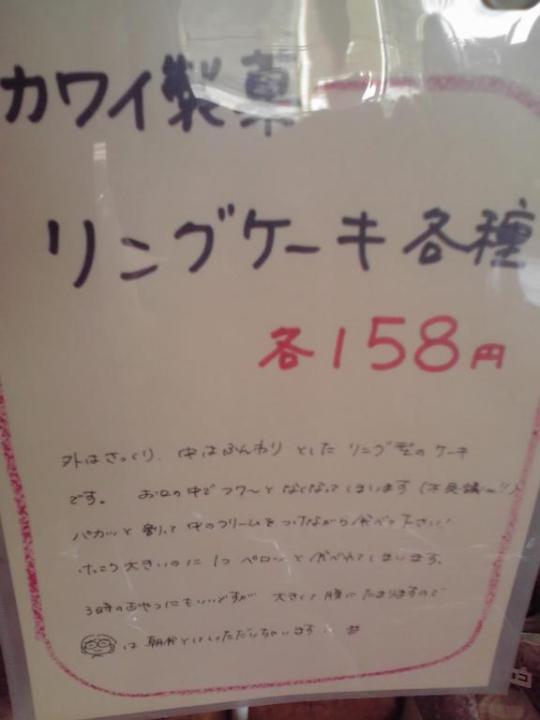 カワイ製菓
リングケーキ各種
各158円
外はさっくり、中はふんわり としたリング型のケーキ
です。 お口の中でフワ〜と なくなってしまいます(不思議…!!)
パカッと割って中のクリームをつけながら食べて下さい!
けっこう大きいのに1つペロッと食べれてしまいます。
3時のおやつにもいいですが 大きくて腹にたまりますので
は朝食としていただいちゃいます。
ョコ